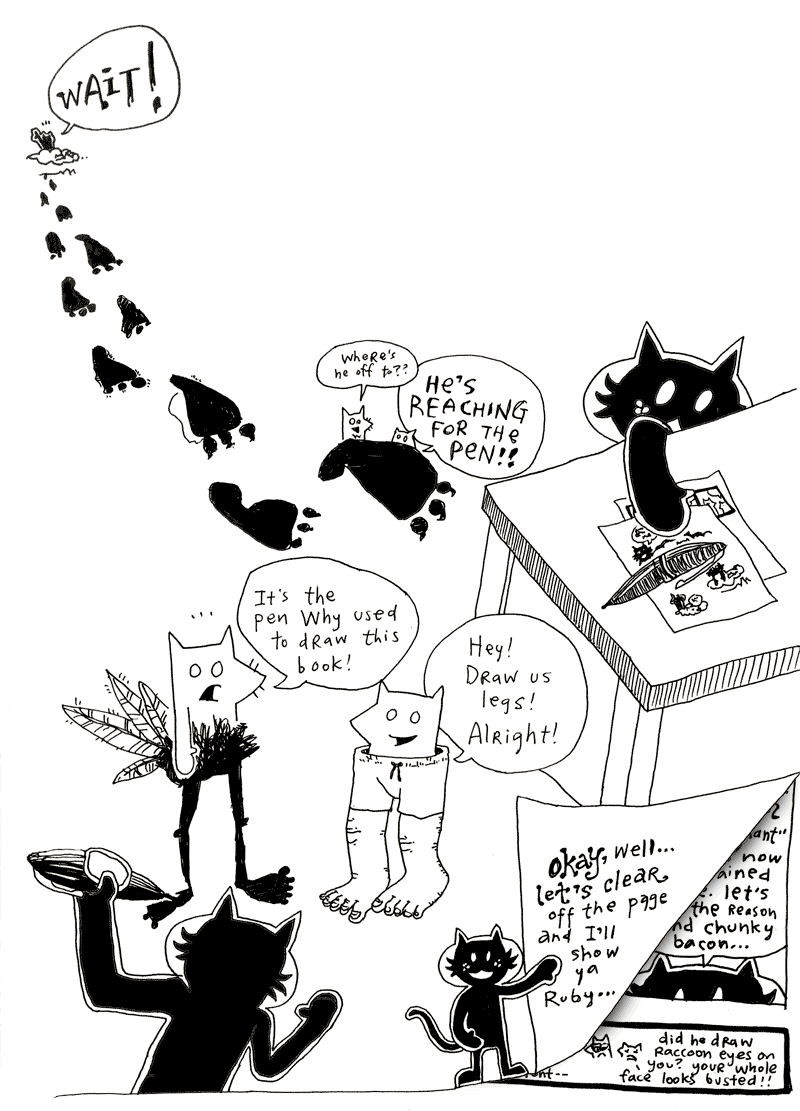 WAiT!
Where's
he off to??
He's
REACHING
FOR THe
PeN!!
It's the
pen Why used
to dRaw this
book!
Hey!
DRaw us
legs!
Alright!
okay, well...
let's cleaR
off the page
and I'll
show
ya
Ruby...
ant"
now
ained
let's
the Reason
nd chunky
bacon...
did he dRaw
Raccoon eyes on
you? your whole
face looks busted!!